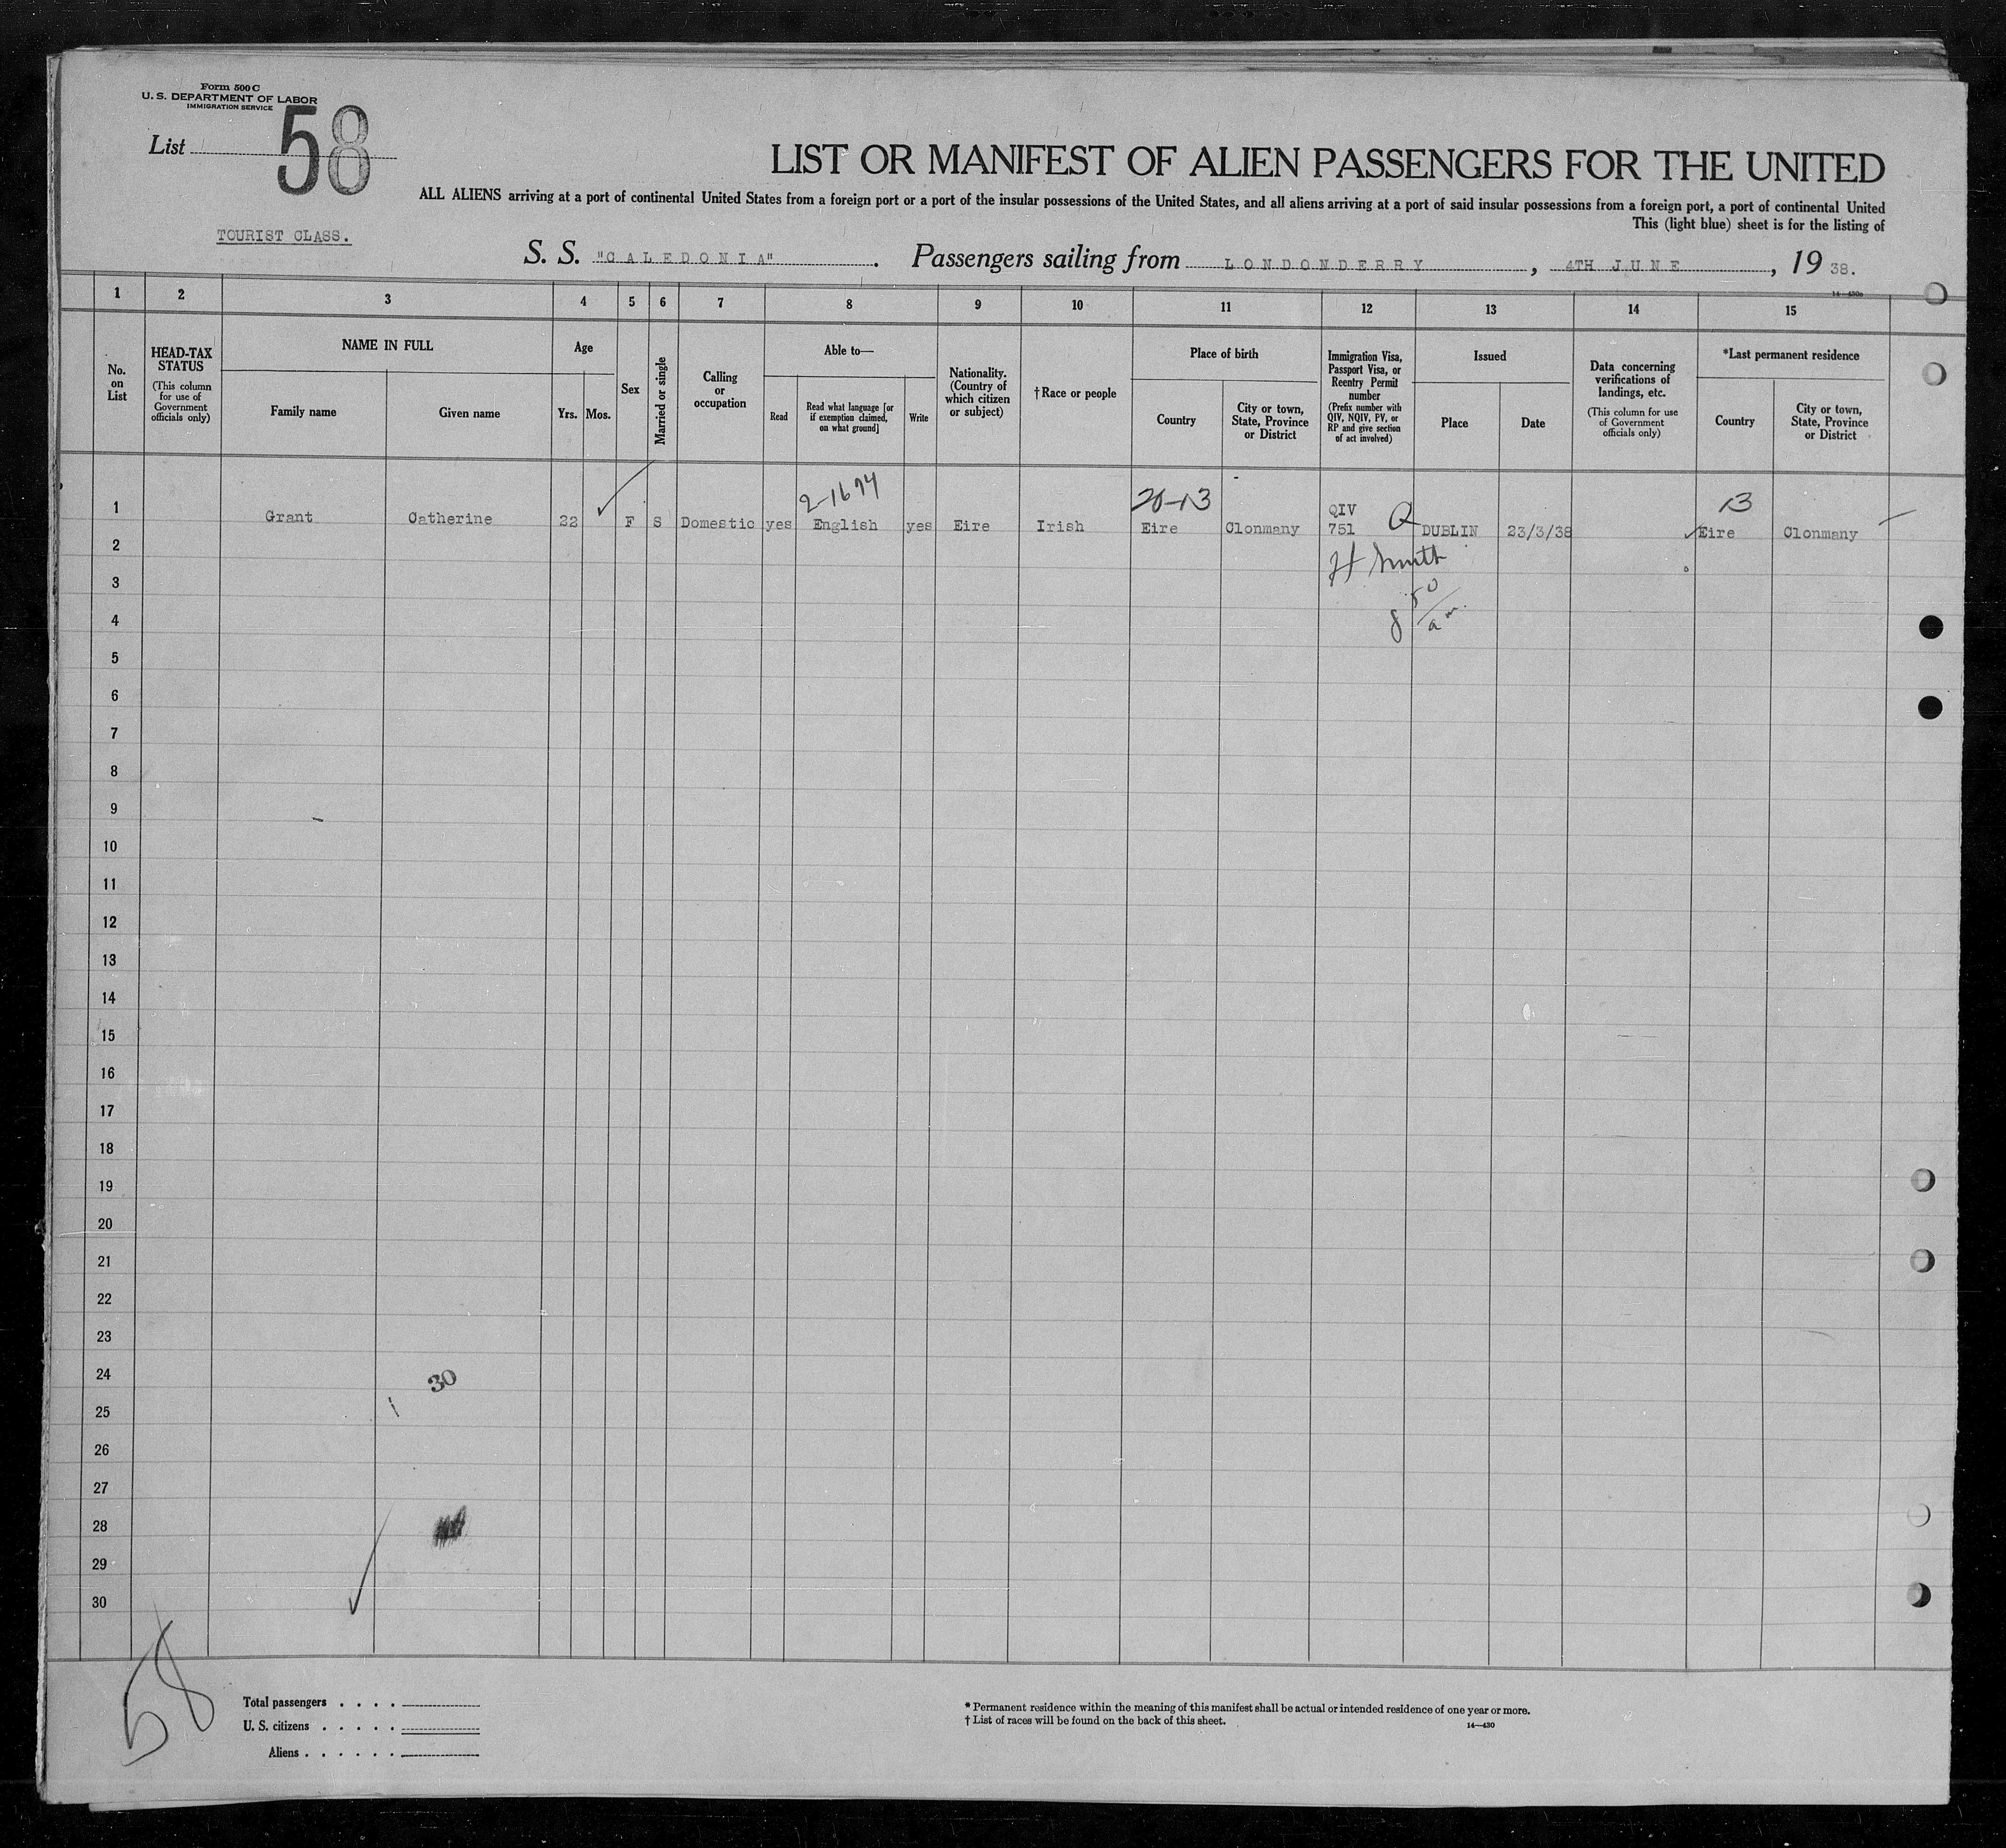 Form 500 C
U. S. DEPARTMENT OF LABOR
IMMIGRATION SERVICE
List 58
LIST OR MANIFEST OF ALIEN PASSENGERS FOR THE UNITED
ALL ALIENS arriving at a port of continental United States from a foreign port or a port of the insular possessions of the United States, and all aliens arriving at a port of said insular possessions from a foreign port, a port of continental United
This (light blue) sheet is for the listing of
TOURIST CLASS.
S. S. "CALEDONIA". Passengers sailing from LONDONDERRY, 4TH JUNE, 1938.
14—430a
1 2 3 4 5 6 7 8 9 10 11 12 13 14 15
No. on List
HEAD-TAX STATUS
(This column for use of Government officials only)
NAME IN FULL
Family name
Given name
Age
Yrs.
Mos.
Sex
Married or single
Calling or occupation
Able to—
Read
Read what language [or if exemption claimed, on what ground]
Write
Nationality. (Country of which citizen or subject)
† Race or people
Place of birth
Country
City or town, State, Province or District
Immigration Visa, Passport Visa, or Reentry Permit number
(Prefix number with QIV, NQIV, PV, or RP and give section of act involved)
Issued
Place
Date
Data concerning verifications of landings, etc.
(This column for use of Government officials only)
*Last permanent residence
Country
City or town, State, Province or District
2-1694
20-13
QIV
13
1 Grant Catherine 22 F S Domestic yes English yes Eire Irish Eire Clonmany 751 Q DUBLIN 23/3/38 Eire Clonmany
2
H Smith
3
8 50/am.
4
5
6
7
8
9
10
11
12
13
14
15
16
17
18
19
20
21
22
23
24
30
25
26
27
28
29
30
58
Total passengers . . . .
U. S. citizens . . . . .
Aliens . . . . . .
* Permanent residence within the meaning of this manifest shall be actual or intended residence of one year or more.
† List of races will be found on the back of this sheet.
14—430